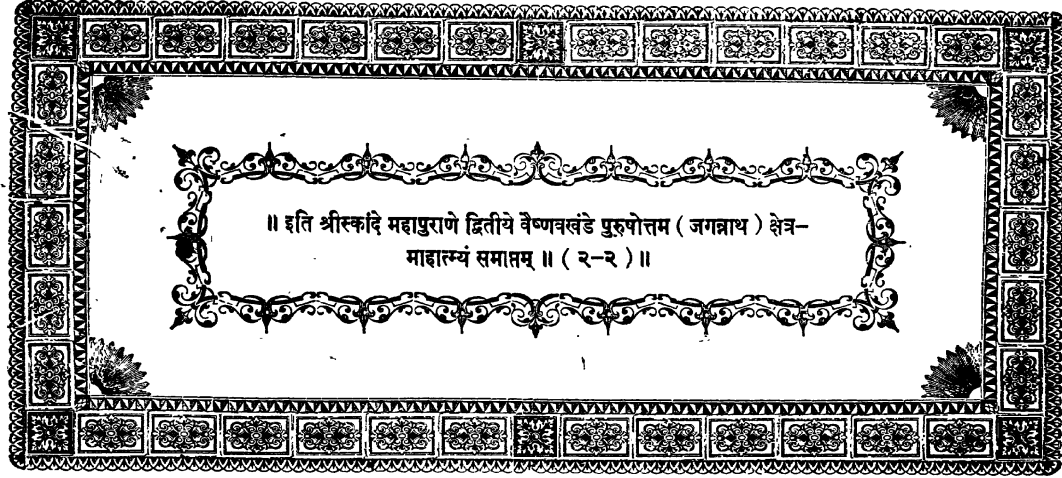 ॥ इति श्रीस्कांदे महापुराणे द्वितीये वैष्णवखंडे पुरुषोत्तम ( जगन्नाथ ) क्षेत्र–
माहात्म्यं समाप्तम् ॥ ( २–२ ) ॥